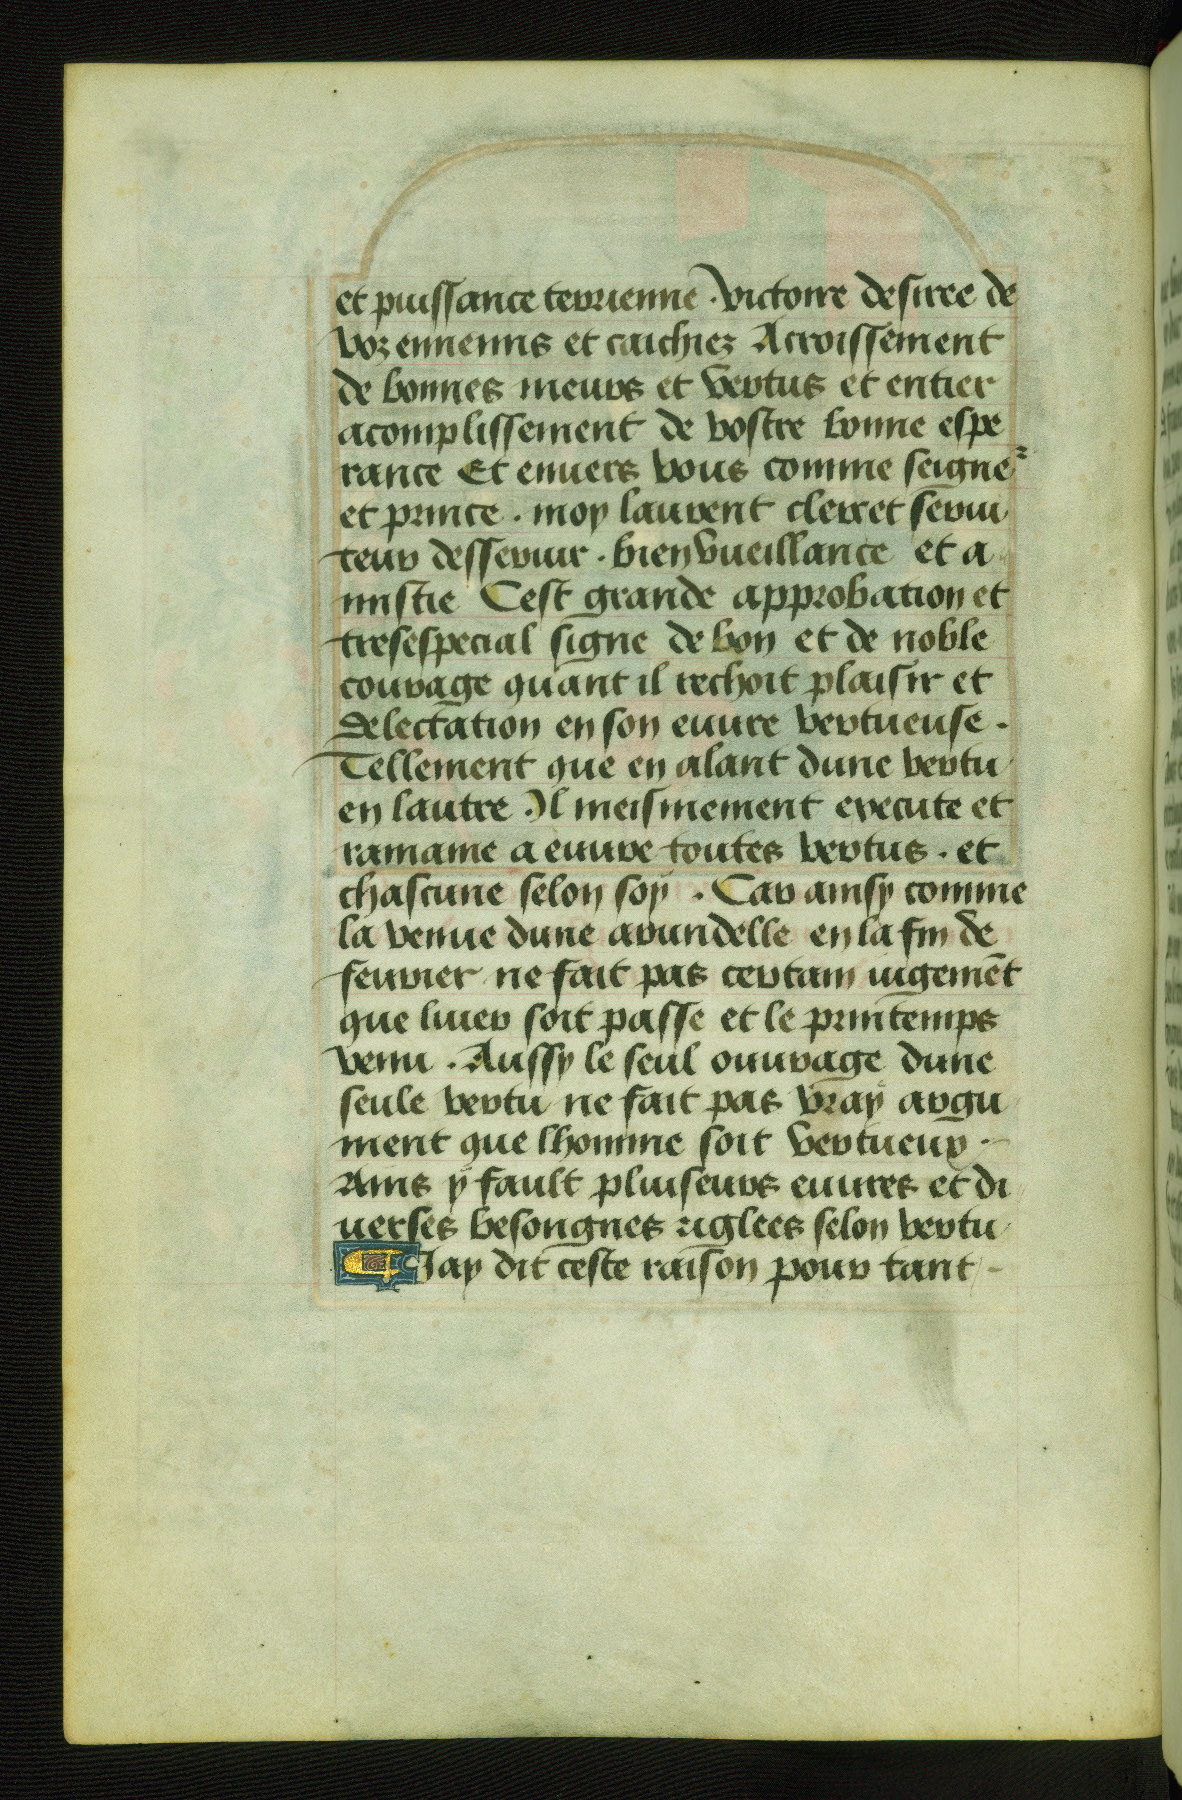 et puissance terrienne . victoire desiree de
voz ennemis et caichiez Acroissement
de bonnes meurs et vertus et entier
acomplissement de vostre bonne espe
rance Et enuers vous comme seigne᷑
et prince . moy laurent clerc et serui
teur desseruir . bien vueillance et a
mistie Cest grande approbation et
tresespecial signe de bon et de noble
courage quant il rechoit plaisir et
delectation en son euure vertueuse .
Tellement que en alant dune vertu
en lautre Il meismement execute et
ramaine a euure toutes vertus . et
chascune selon soy . Car ainsy comme
la venue dune arundelle en la fin de
feurier ne fait pas certain iugemēt
que liuer soit passe et le printemps
venu . Aussy le seul ouurage dune
seule vertu ne fait pas vray argu
ment que lhomme soit vertueux .
Ains y fault pluiseurs euures et di
uerses besongnes riglees selon vertu
Jay dit ceste raison pour tant